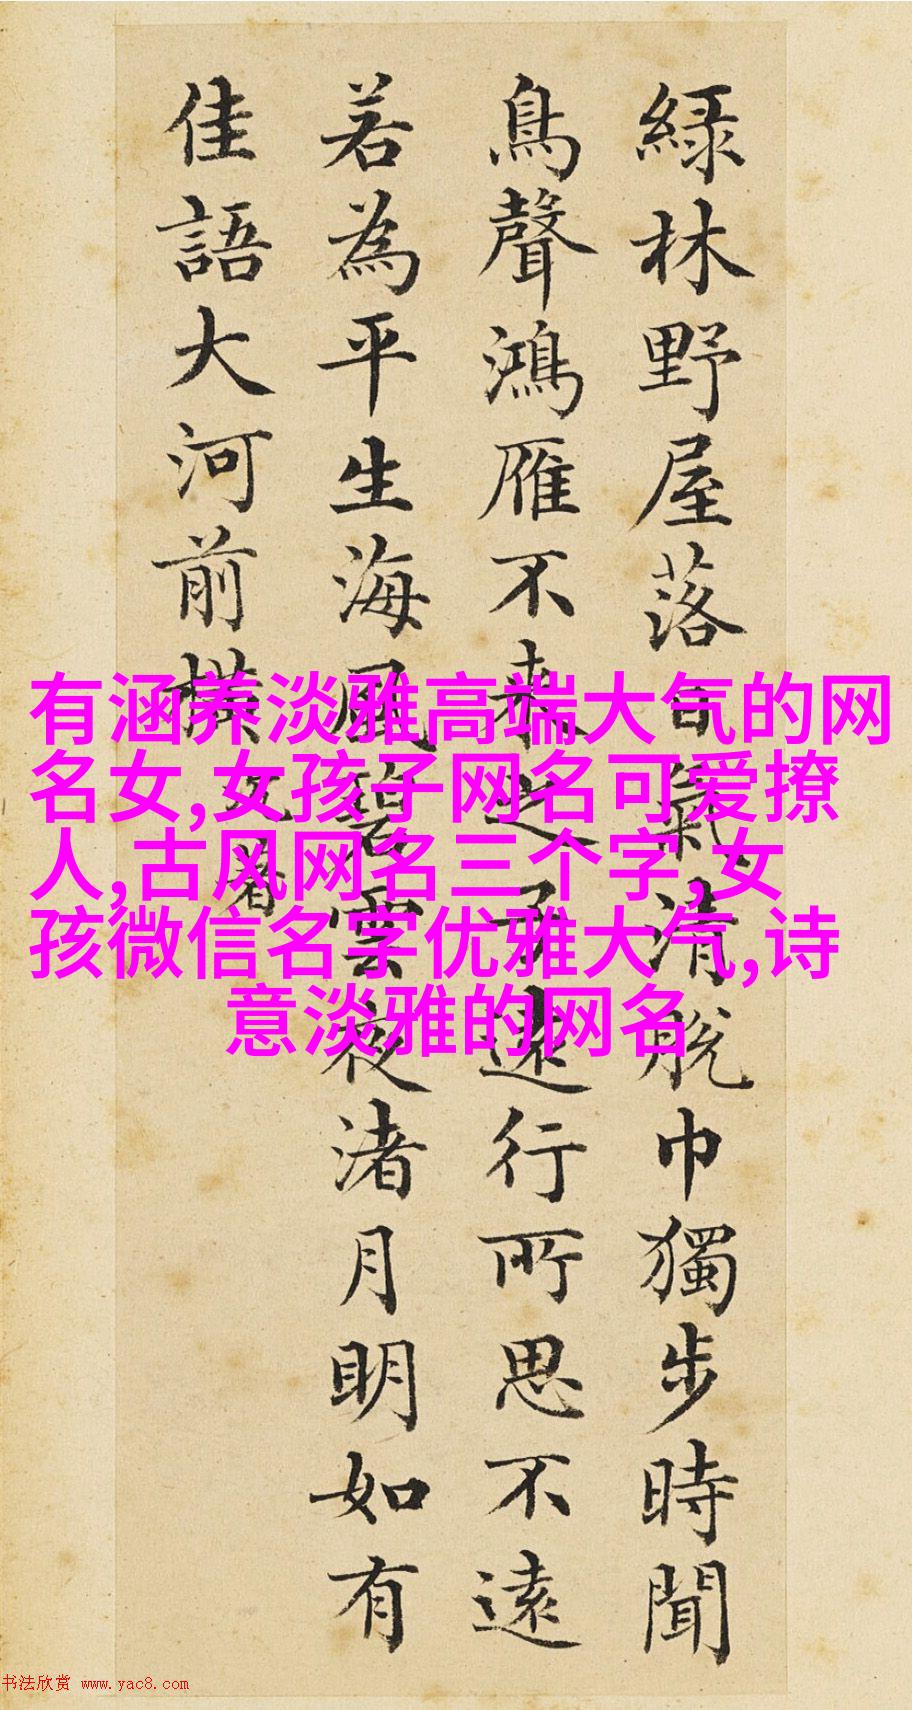 綠林野屋落日氣清脫巾獨步時聞
鳥聲鴻雁不來之子遠行所思不遠
若為平生海風碧雲夜渚月明如有
佳語大河前橫
有涵养淡雅高端大气的网
名女,女孩子网名可爱撩
人,古风网名三个字,女
孩微信名字优雅大气,诗
意淡雅的网名
书法欣赏 www.yac8.com